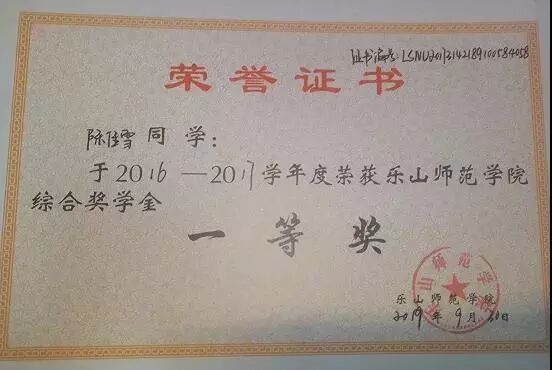 证书编号:LSNU20173142189100584058
荣誉证书
陈佳雪同学:
于2016—2017学年度荣获乐山师范学院
综合奖学金
一等奖
乐山师范学院
乐山师范学院
2017年9月20日